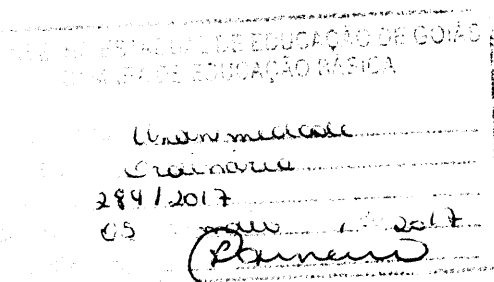 DE EDUCAÇÃO DE GOIÁS
DE EDUCAÇÃO BÁSICA
Unanimidade
Ordinária
284/2017
05 maio 2017